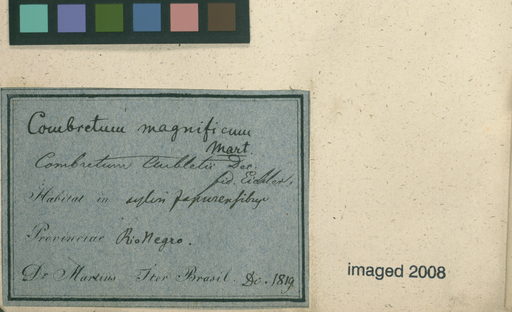 Combretum magnificum
Mart.
Combretum Aubletii Dec.
fid. Eichler.
Habitat in sylvis Japurensibus
Provinciae Rio Negro.
Dr Martius Iter Brasil. Dc. 1819
imaged 2008